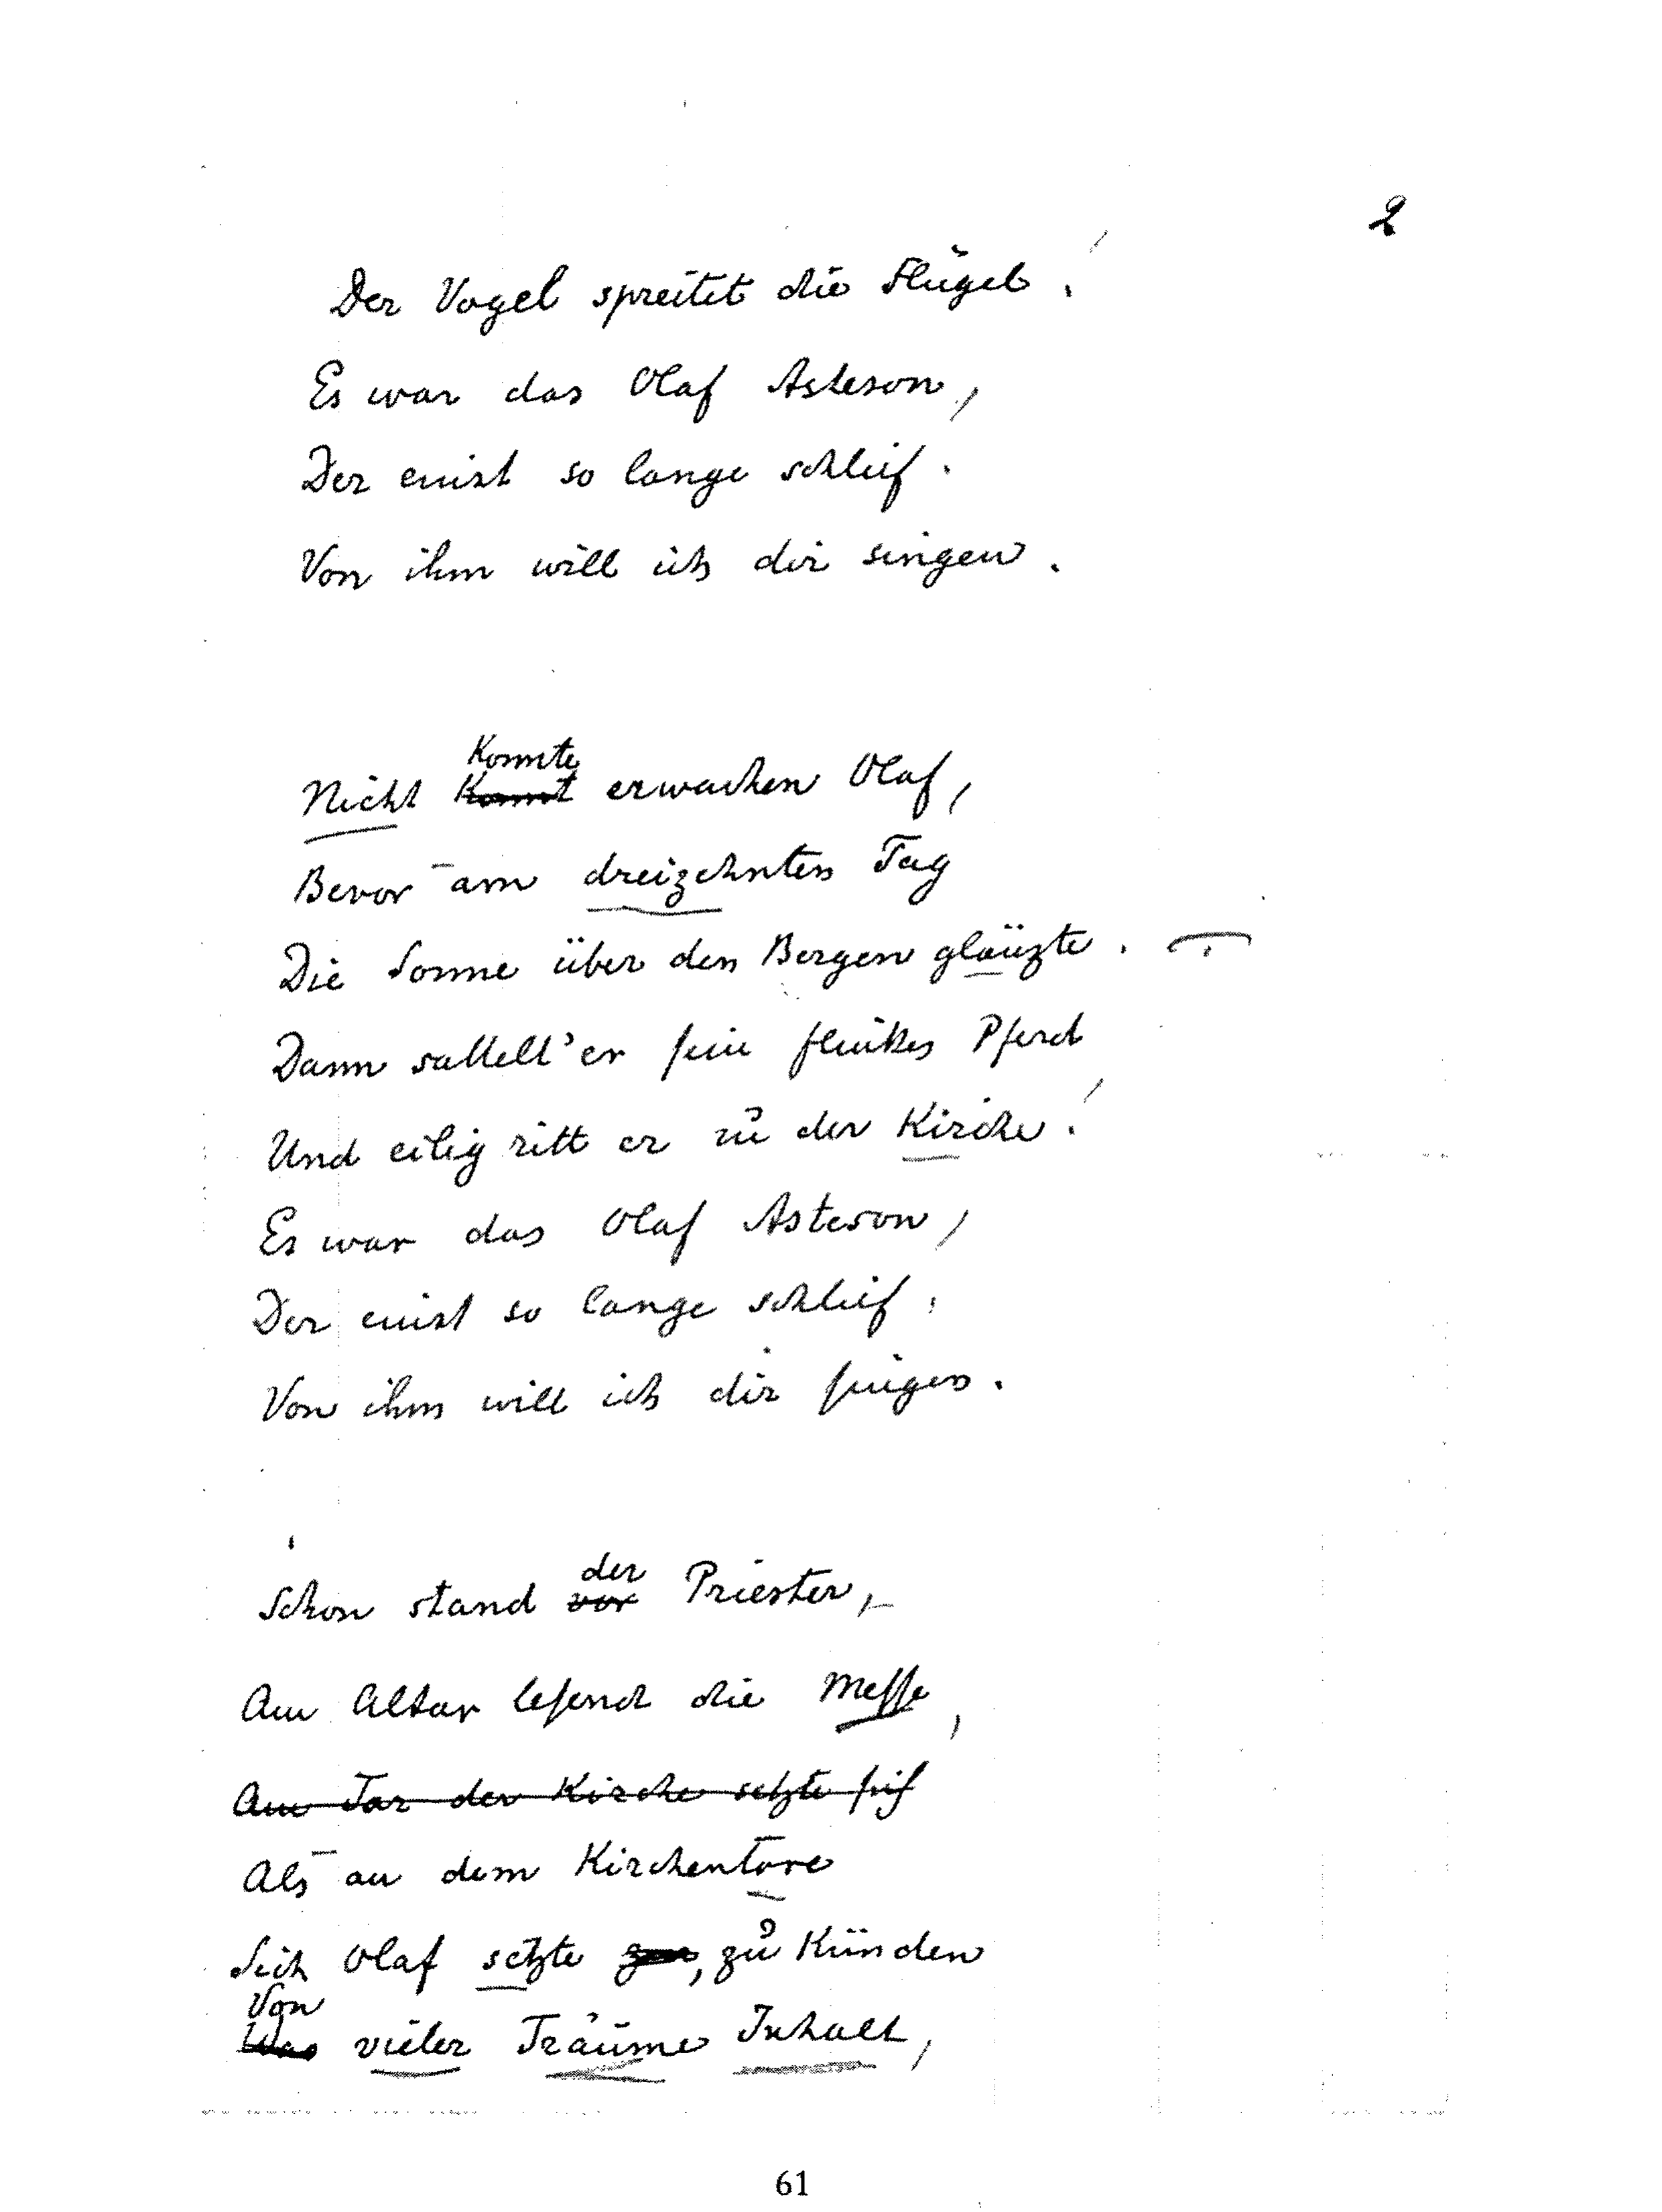 2
Der Vogel spreitet die Flügel.
Es war das Olaf Asteson,
Der einst so lange schlief.
Von ihm will ich dir singen.
Konnte
Nicht Konnt erwachen Olaf,
Bevor am dreizehnten Tag
Die Sonne über den Bergen glänzte.
Dann sattelt' er sein flinkes Pferd
Und eilig ritt er zu der Kirche.
Es war das Olaf Asteson,
Der einst so lange schlief.
Von ihm will ich dir singen.
der
Schon stand vor Priester,
Am Altar lesend die Messe,
Am Tor der Kirche setzte sich
Als an dem Kirchentore
Sich Olaf setzte, zu Künden
Von
Was vieler Träume Inhalt,
61